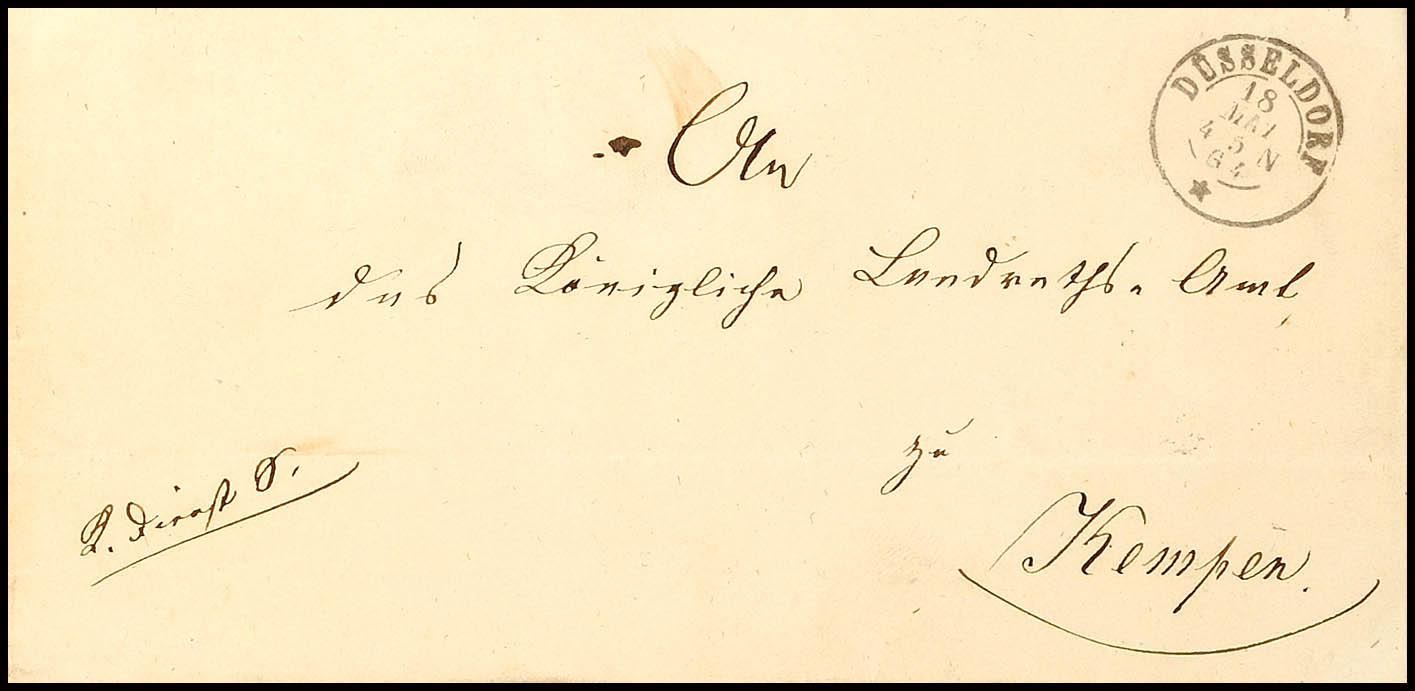 DÜSSELDORF
18
MAI
4 5 N
64
An
das Königliche Landraths-Amt
zu
Kempen.
K. Dienst S.